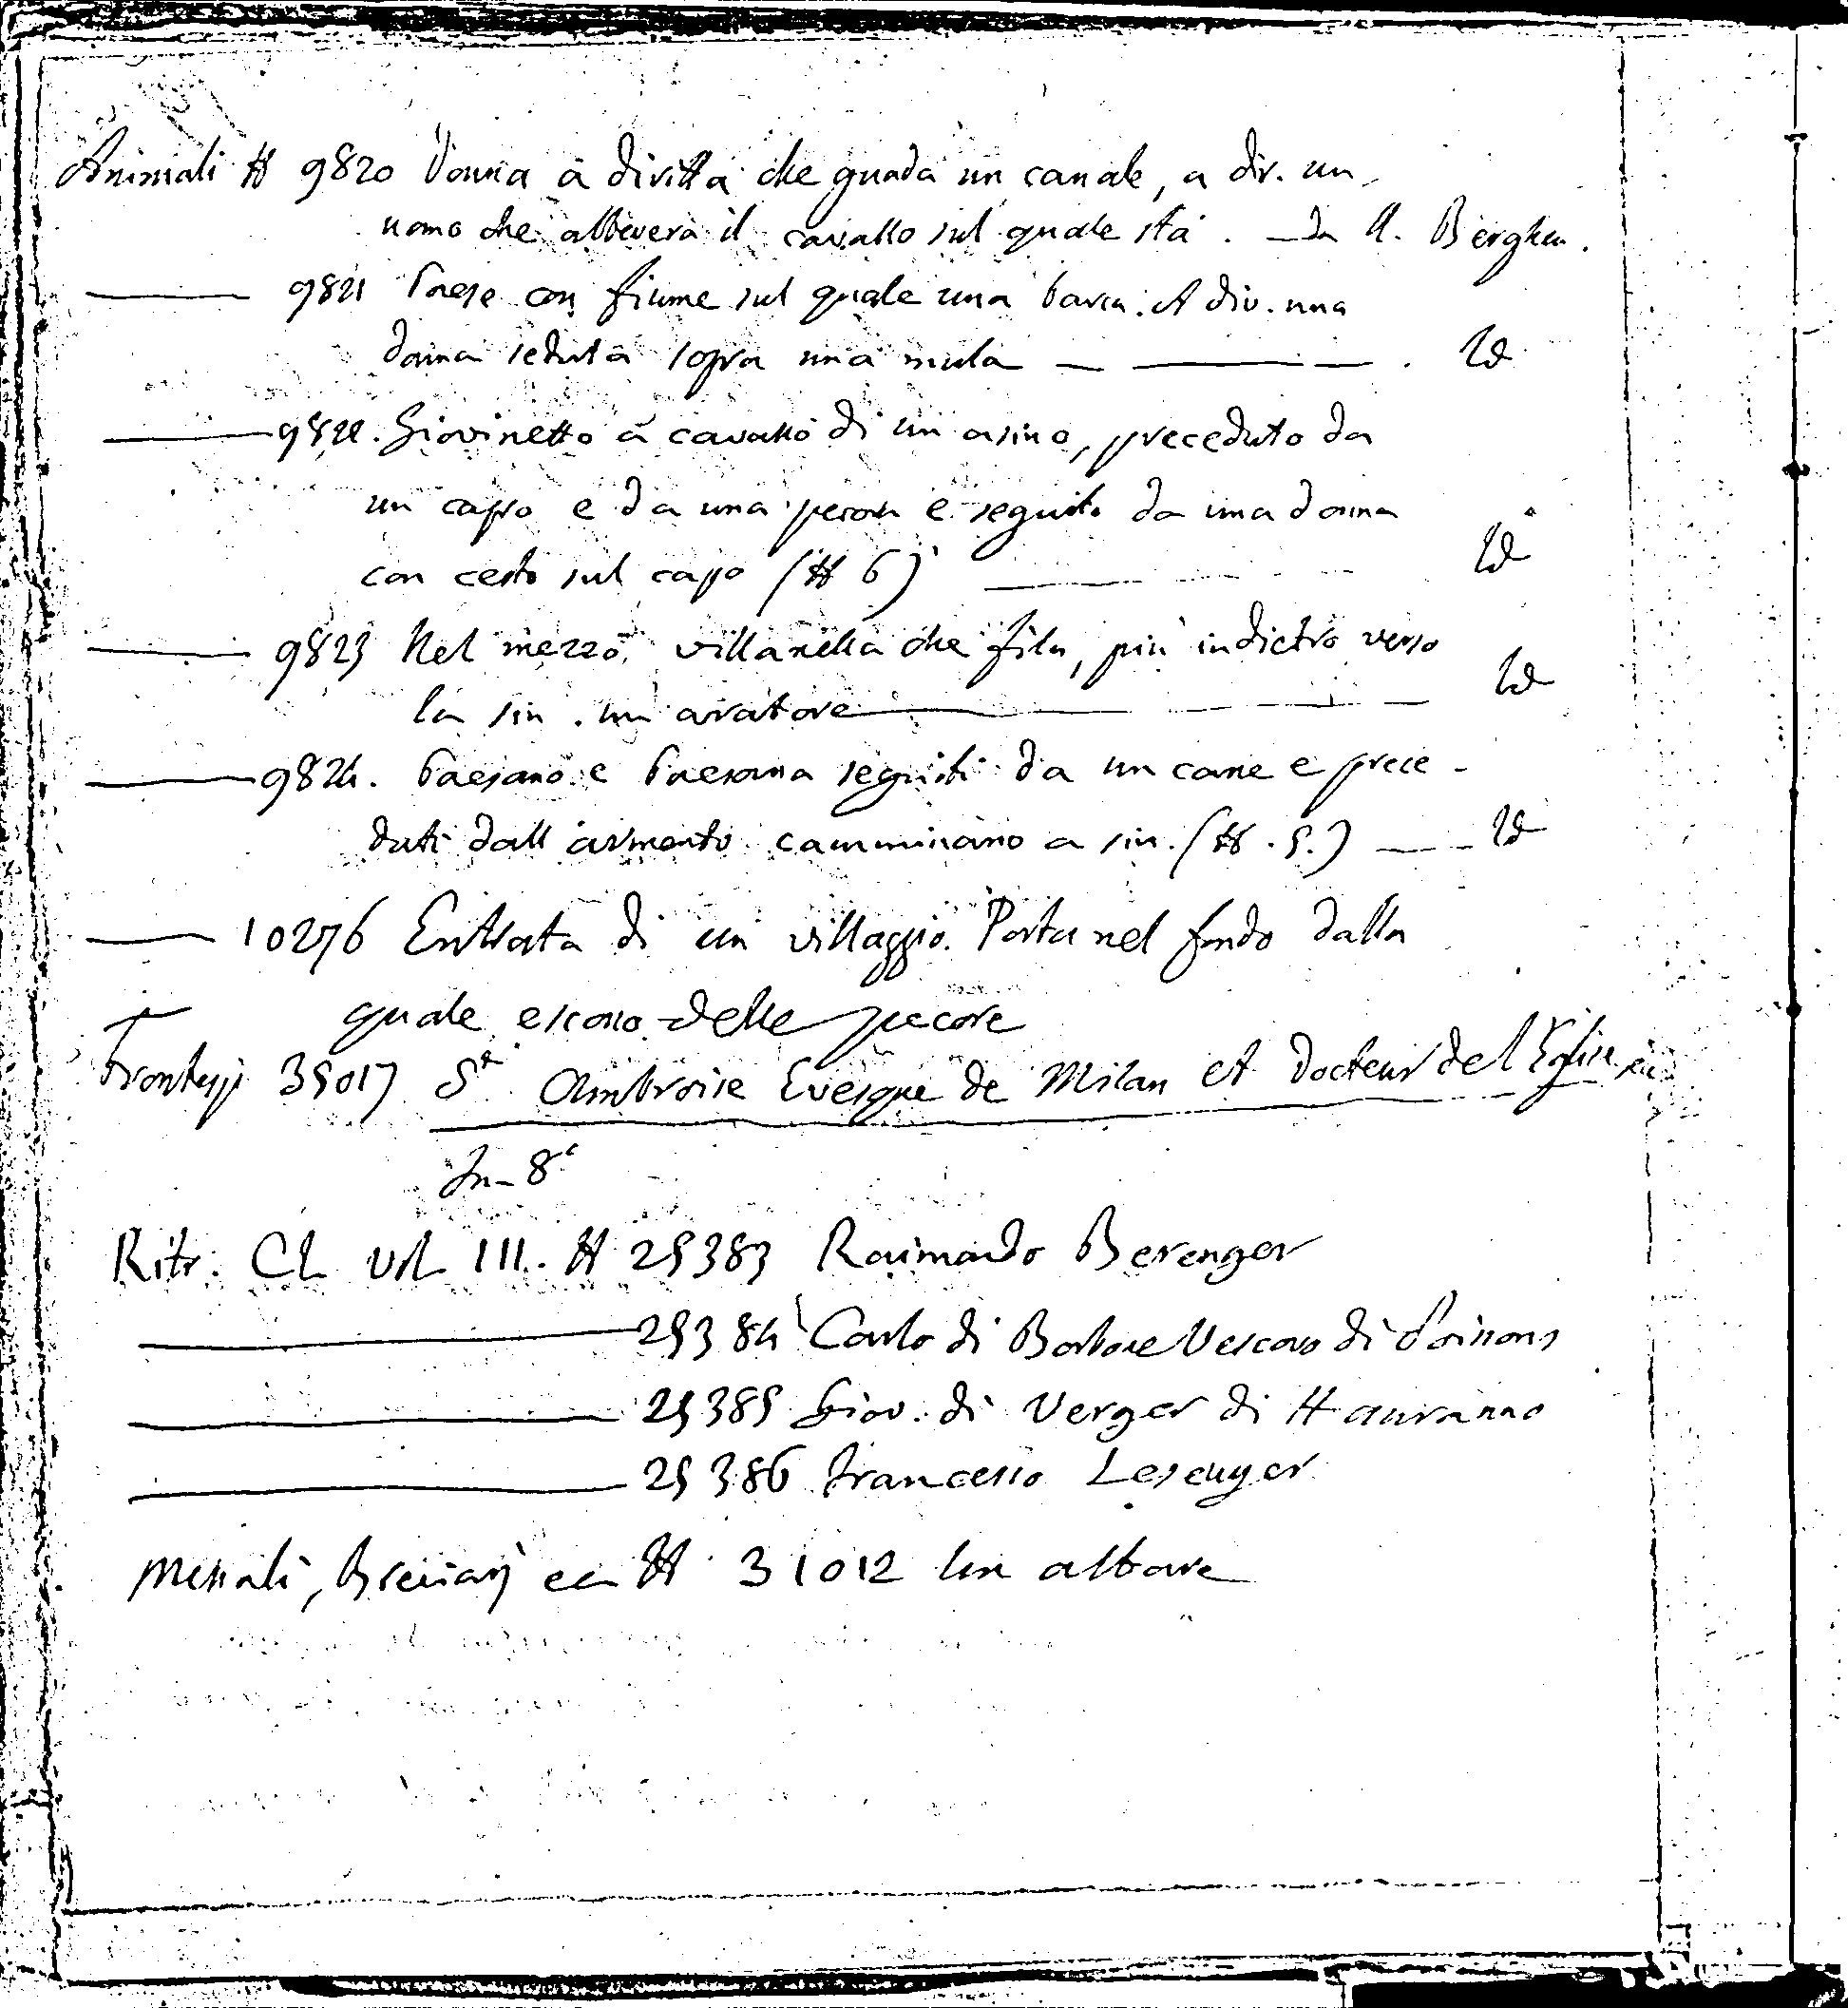 Animali # 9820 Donna a diritta che guada un canale, a dir. un
uomo che abbevera il cavallo sul quale sta. — Da N. Berghem.
——— 9821 Paese con fiume sul quale una barca. A dir. una
donna seduta sopra una mula — ——— . Id
——— 9822. Giovinetto a cavallo di un asino, preceduto da
un capro e da una pecora e seguito da una donna
con cesto sul capo (# 6) ——— Id
——— 9823 Nel mezzo villanella che fila, più indietro verso
la sin. un aratore ——— Id
——— 9824. Paesano e Paesana seguiti da un cane e prece-
duti dall'armento camminano a sin. (# .5.) — - Id
——— 10276 Entrata di un villaggio. Porta nel fondo dalla
quale escono delle pecore
Frontespi 35017 St Ambroise Evesque de Milan et Docteur de l'Eglise
In-8°
Ritr. Cl vol III. # 25383 Raimondo Berenger
——— 25384 Carlo di Borbone Vescovo di Soissons
——— 25385 Giov. di Verger di Hauranno
——— 25386 Francesco
Messali, Breviarj ec # 31012 Un altare